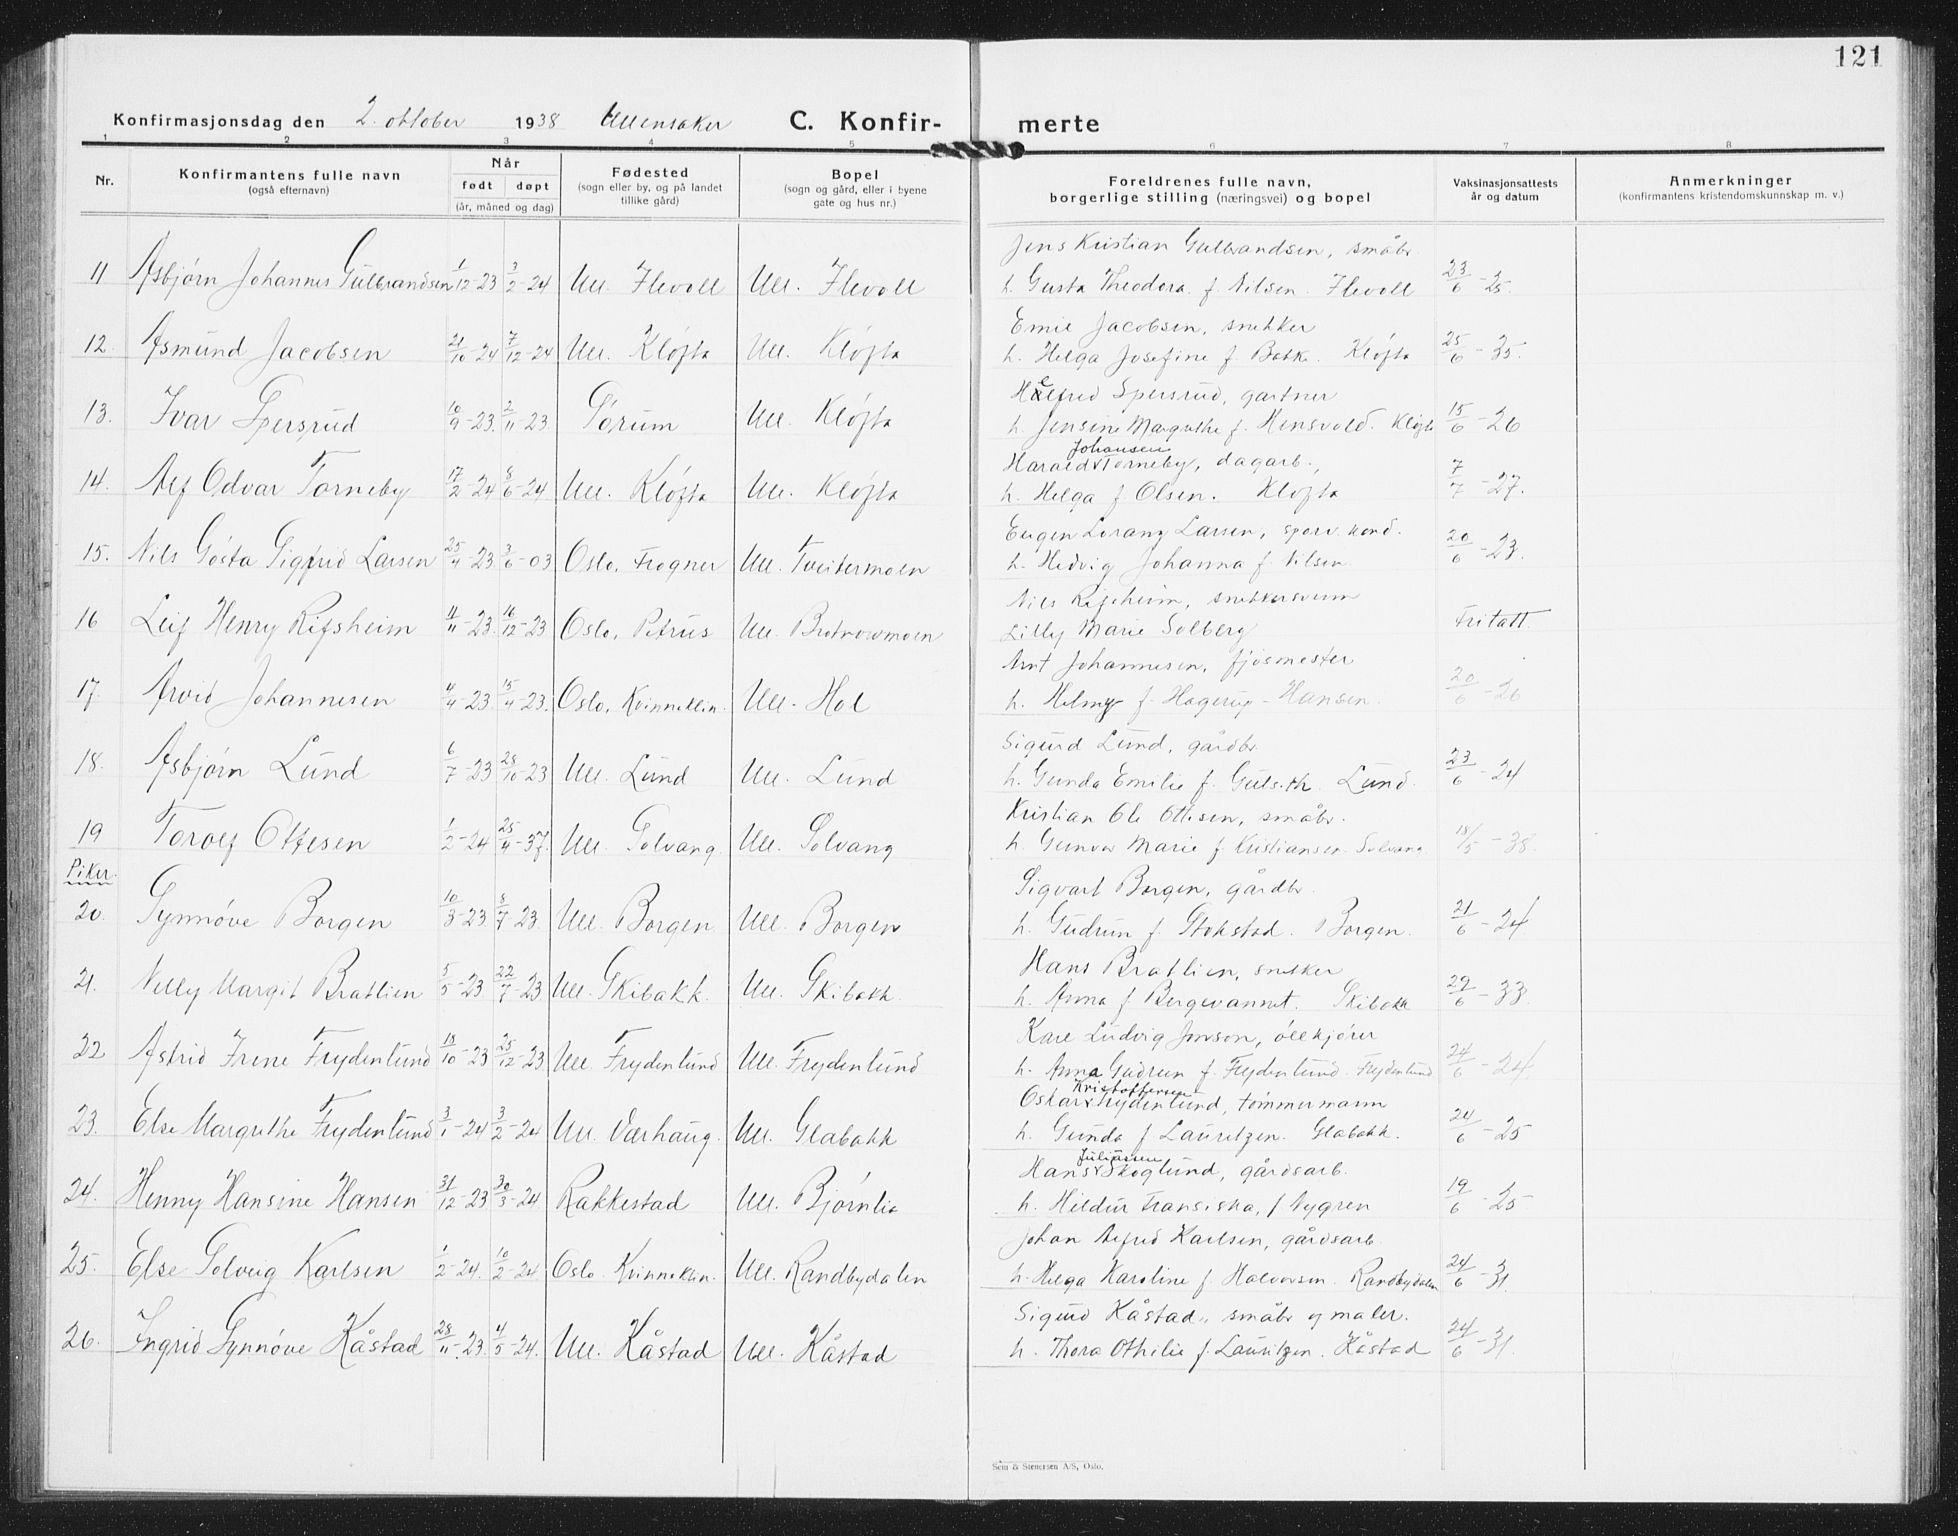 121
Konfirmasjonsdag den 2. oktober 1938 Ullensaker C. Konfir- merte
1 2 3 4 5 6 7 8
Nr. Konfirmantens fulle navn (også efternavn) Når født døpt (år, måned og dag) Fødested (sogn eller by, og på landet tillike gård) Bopel (sogn og gård, eller i byene gate og hus nr.) Foreldrenes fulle navn, borgerlige stilling (næringsvei) og bopel Vaksinasjonsattests år og datum Anmerkninger (konfirmantens kristendomskunnskap m. v.)
Jens Kristian Gulbrandsen, småbr.
11 Asbjørn Johannes Gulbrandsen 1/12-23 3/2-24 Ull. Flevoll Ull. Flevoll h. Gusta Theodora f. Nilsen. Flevoll 23/6-25.
Emil Jacobsen, snekker
12. Asmund Jacobsen 21/10-24 7/12-24 Ull. Kløfta Ull. Kløfta h. Helga Josefine f. Bakke. Kløfta 25/6-35.
Helfred Spersrud, gartner
13. Ivar Spersrud 10/9-23. 2/11-23. Sørum Ull. Kløfta h. Jensine Margrethe f. Hensvold. Kløfta 15/6-26
Johansen
Harald v Torneby, dagarb.,
14. Alf Odvar Torneby 17/2-24 8/6-24 Ull. Kløfta Ull. Kløfta h. Helga f Olsen. Kløfta 7/7-27.
Eugen Lorang Larsen, sporv. kond.
15. Nils Gösta Sigfrid Larsen 25/4-23 3/6-03 Oslo, Frogner Ull. Tveitermoen h. Hedvig Johanna f. Nilsen 20/6-23.
Nils Rifsheim, snekkersvenn
16 Leif Henry Rifsheim 11/11-23. 16/12-23 Oslo, Petrus Ull. Brotnowmoen Lilly Marie Solberg Fritatt.
Arnt Johannesen, fjøsmester
17. Arvid Johannesen 4/4-23. 15/4-23. Oslo, Kvinneklin. Ull. Hol h. Helmy f. Hagerup-Hansen. 20/6-26
Sigurd Lund, gårdbr.
18. Asbjørn Lund 6/7-23 28/10-23 Ull. Lund Ull. Lund h. Gunda Emilie f. Gulseth. Lund. 23/6-24
Kristian Ole Ottesen, småbr.
19 Torolf Ottesen 1/2-24 25/4-37. Ull. Solvang Ull. Solvang h. Gunvor Marie f. Kristiansen. Solvang 18/5-38.
Piker.
Sigvart Borgen, gårdbr.
20. Synnøve Borgen 10/3-23 8/7-23. Ull. Borgen Ull. Borgen h. Gudrun f. Stokstad. Borgen. 21/6-24
Hans Bratlien, snekker
21. Nelly Margit Bratlien 5/5-23 22/7-23 Ull. Skibakk. Ull. Skibakk. h. Anna f Bergevannet. Skibakk 22/6-33.
Kare Ludvig Jonson, ølkjører
22 Astrid Irene Frydenlund 13/10-23 25/12-23 Ull. Frydenlund Ull. Frydenlund h. Anna Gudrun f. Frydenlund. Frydenlund 24/6-24
Kristoffersen
Oskar v Frydenlund, tømmermann
23. Else Margrethe Frydenlund 3/1-24 3/2-24 Ull. Værhaug. Ull. Glabakk h. Gunda f Lauritzen. Glabakk. 24/6-25
Juliussen
Hans v Skoglund, gårdsarb.
24. Henny Hansine Hansen 31/12-23 30/3-24 Rakkestad Ull. Bjørnlia h. Hildur Fransiska, f Nygren 19/6-25
Johan Alfred Karlsen, gårdsarb.
25. Else Solveig Karlsen 1/2-24. 10/2-24 Oslo. Kvinneklin. Ull. Randbydalen h. Helga Karoline f. Halvorsen. Randbydalen 24/6-31.
Sigurd Kåstad, småbr. og maler.
26. Ingrid Synnøve Kåstad 28/11-23. 4/5-24. Ull. Kåstad Ull. Kåstad h. Thora Othilie f. Lauritzen. Kåstad 24/6-31.
Sem & Stenersen A/S, Oslo.